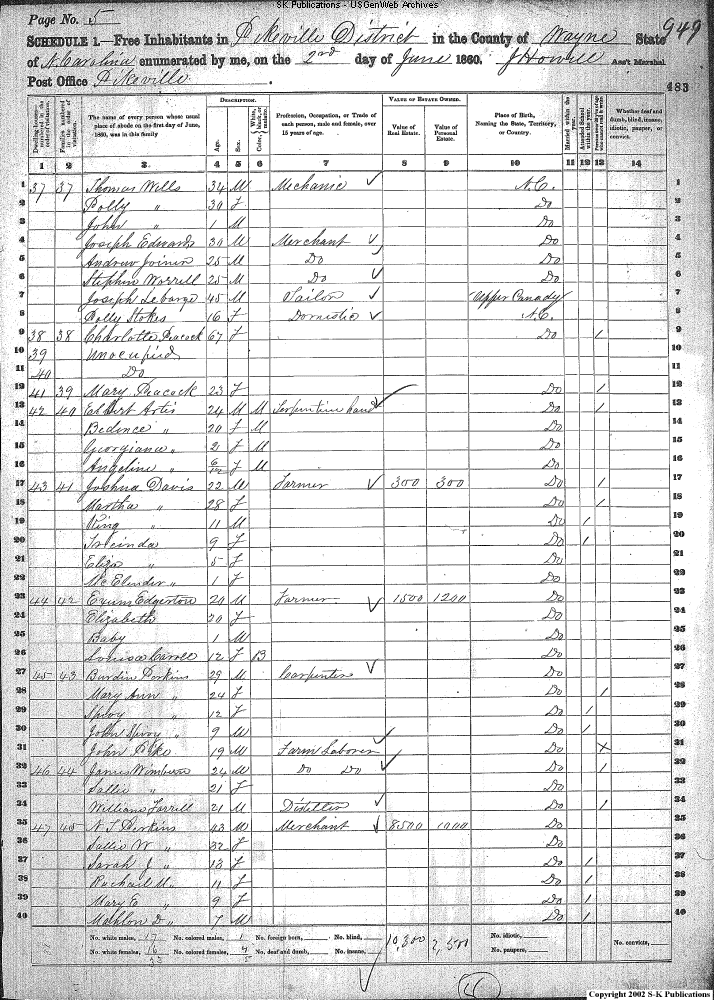 SK Publications - USGenWeb Archives
Page No. 5
949
SCHEDULE 1.—Free Inhabitants in Pikeville District in the County of Wayne State
of N. Carolina enumerated by me, on the 2nd day of June 1860. J Howell Ass't Marshal
Post Office Pikeville.
483
Dwelling-houses numbered in the order of visitation.
Families numbered in the order of visitation.
The name of every person whose usual place of abode on the first day of June, 1860, was in this family
DESCRIPTION.
Age.
Sex.
Color, White, black, or mulatto.
Profession, Occupation, or Trade of each person, male and female, over 15 years of age.
VALUE OF ESTATE OWNED.
Value of Real Estate.
Value of Personal Estate.
Place of Birth, Naming the State, Territory, or Country.
Married within the year.
Attended School within the year.
Whether deaf and dumb, blind, insane, idiotic, pauper, or convict.
1 2 3 4 5 6 7 8 9 10 11 12 13 14
1 37 37 Thomas Wells 34 M Mechanic N.C. 1
2 Polly " 30 F Do 2
3 John " 1 M Do 3
4 Joseph Edwards 30 M Merchant Do 4
5 Andrew Joiner 25 M Do Do 5
6 Stephen Worrell 25 M Do Do 6
7 Joseph Lebarge 45 M Tailor Upper Canady 7
8 Polly Stokes 16 F Domestic N.C. 8
9 38 38 Charlotte Peacock 67 F Do / 9
10 39 Unocupied 10
11 40 Do 11
12 41 39 Mary Peacock 23 F Do / 12
13 42 40 Elbert Artis 24 M M Serpentine hand Do / 13
14 Bedence " 20 F M Do 14
15 Georgiana " 2 F M Do 15
16 Angeline " 6/12 F M Do 16
17 43 41 Joshua Davis 22 M Farmer 300 300 Do / 17
18 Martha " 28 F Do / 18
19 King " 11 M Do / 19
20 " 9 F Do / 20
21 Eliza " 5 F Do 21
22 " 1 F Do 22
23 44 42 Edgerton 20 M Farmer 1500 1200 Do 23
24 Elizabeth 20 F Do 24
25 Baby 1 M Do 25
26 Louisa 12 F B Do 26
27 45 43 Burdin Perkins 29 M Carpenter Do 27
28 Mary Ann " 24 F Do / 28
29 " 12 F Do / 29
30 John Spivy " 9 M Do / 30
31 John Pike 19 M Farm Laborer Do X 31
32 46 44 James Wimburn 24 M Do Do Do / 32
33 Sallie " 21 F Do 33
34 William Farrill 21 M Distiller Do / 34
35 47 45 N T Perkins 43 M Merchant 8500 1000 Do 35
36 Sallie W " 32 F Do 36
37 Sarah J " 13 F Do / 37
38 Rachail M " 11 F Do / 38
39 Mary E " 9 F Do / 39
40 Mahlon D " 7 M Do / 40
No. white males, 17 No. colored males, 1 No. foreign born, No. blind, 10,300 2,500 No. idiotic, No. convicts,
No. white females, 16 No. colored females, 4 No. deaf and dumb, No. insane, No. paupers,
33 5
Copyright 2002 S-K Publications